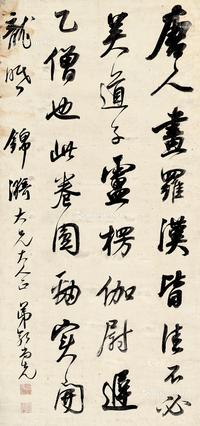 唐人畫羅漢皆佳不必
吳道子盧楞伽尉遲
乙僧也此卷圓勁實開
龍眠 錦濤大兄大人正 弟郭尚先